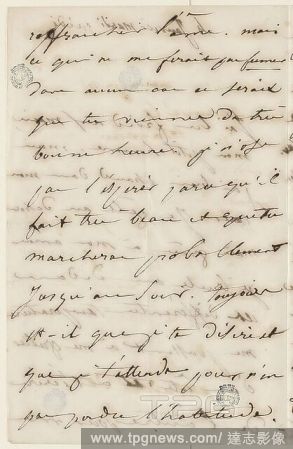 mais
ce qui ne me ferait pas fumer
dans aucun cas ce serait
que tu vinsses de très
bonne heure. je n'ose
pas l'espérer parce qu'il
fait très beau et que tu
marcheras probablement
jusqu'au soir. Toujours
est-il que je te désire et
que je t'attends pour n'en
pas perdre l'habitude.
TPG
www.tpgnews.com / 達志影像